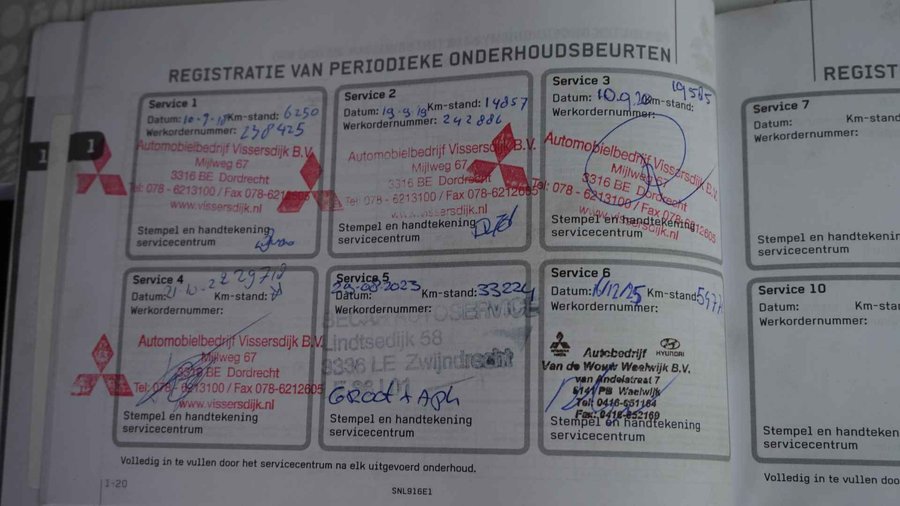 REGISTRATIE VAN PERIODIEKE ONDERHOUDSBEURTEN
Service 1
Datum: 10-9-18 Km-stand: 6250
Werkordernummer: 238425
Automobielbedrijf Vissersdijk B.V.
Mijlweg 67
3316 BE Dordrecht
Tel: 078 - 6213100 / Fax 078-6212605
www.vissersdijk.nl
Stempel en handtekening
servicecentrum
Service 2
Datum: 19-9-19 Km-stand: 14857
Werkordernummer: 242886
Automobielbedrijf Vissersdijk B.V.
Mijlweg 67
3316 BE Dordrecht
Tel: 078 - 6213100 / Fax 078-6212605
www.vissersdijk.nl
Stempel en handtekening
servicecentrum
Service 3
Datum: 10.9.20 Km-stand: 19585
Werkordernummer:
Automobielbedrijf Vissersdijk B.V.
Mijlweg 67
3316 BE Dordrecht
Tel: 078 - 6213100 / Fax 078-6212605
www.vissersdijk.nl
Stempel en handtekening
servicecentrum
Service 4
Datum: Km-stand:
Werkordernummer:
Automobielbedrijf Vissersdijk B.V.
Mijlweg 67
3316 BE Dordrecht
Tel: 078 - 6213100 / Fax 078-6212605
www.vissersdijk.nl
Stempel en handtekening
servicecentrum
Service 5
Datum: 29-08-2023 Km-stand: 33224
Werkordernummer:
Lindtsedijk 58
3336 LE Zwijndrecht
Groot + Apk
Stempel en handtekening
servicecentrum
Service 6
Datum: Km-stand:
Werkordernummer:
HYUNDAI
Autobedrijf
Van de Wouw Waalwijk B.V.
van Andelstraat 7
5141 PB Waalwijk
Tel: 0416-651164
Fax: 0416-652169
Stempel en handtekening
servicecentrum
Volledig in te vullen door het servicecentrum na elk uitgevoerd onderhoud.
1-20
SNL916E1
1
1
REGIST
Service 7
Datum: Km-stan
Werkordernummer:
Stempel en handtekenin
servicecentrum
Service 10
Datum: Km-stan
Werkordernummer:
Stempel en handtekenin
servicecentrum
Volledig in te vullen doo